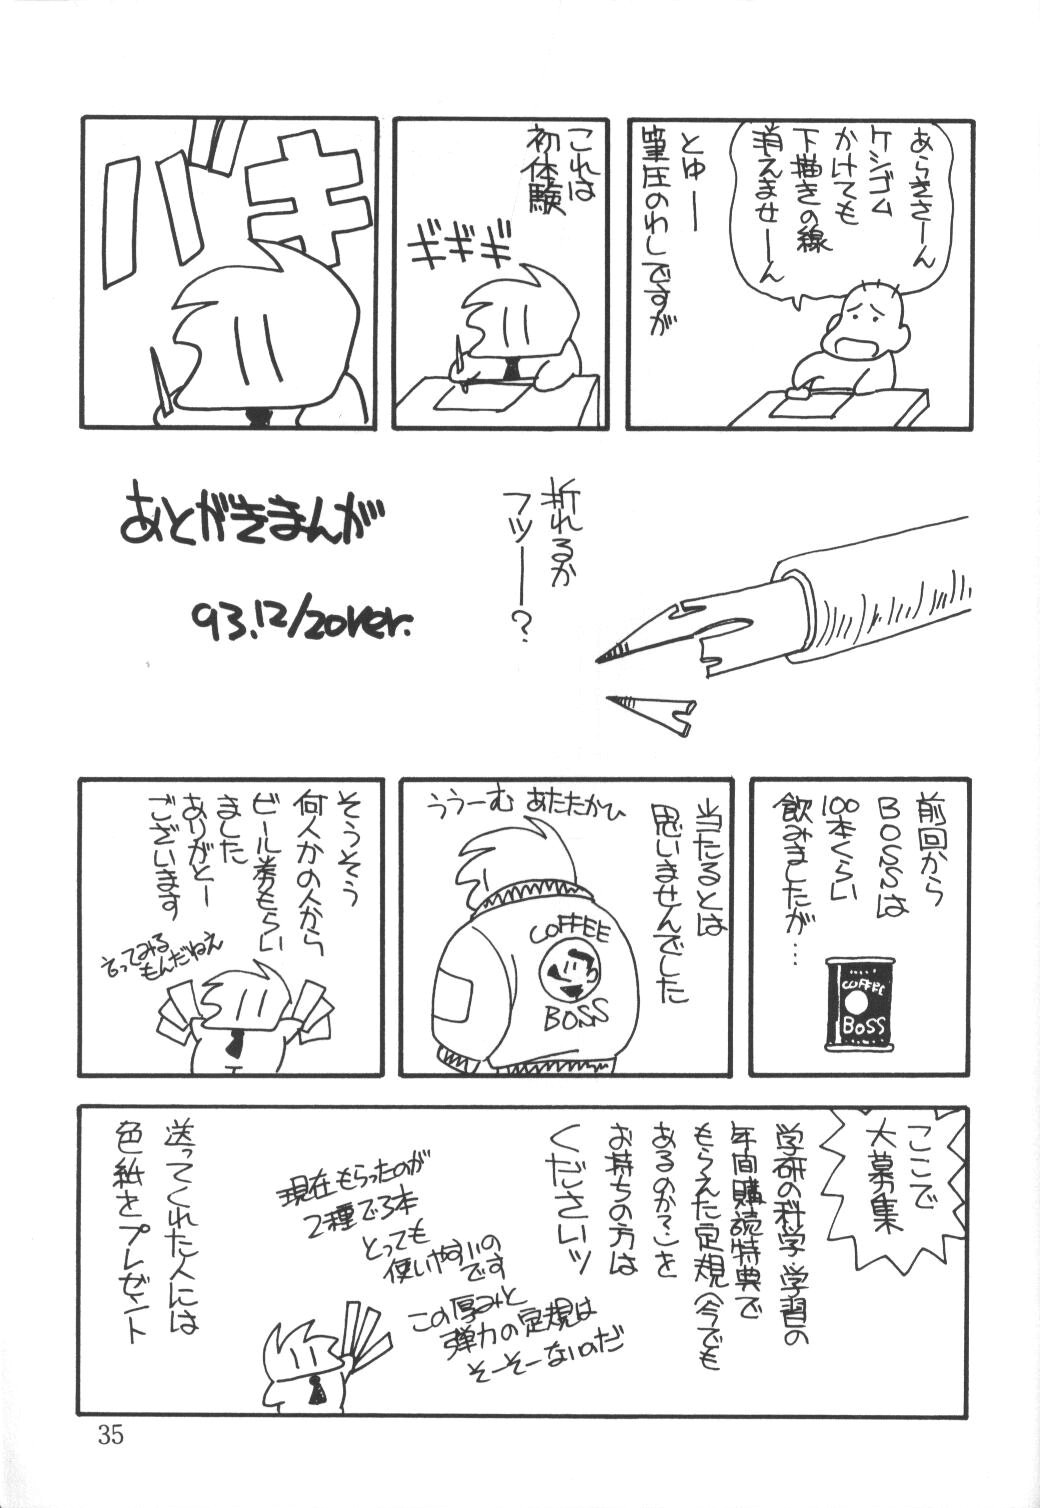 あらきさーん
ケシゴム
かけても
下描きの線
消えませーん
とゆー
筆圧のわしですが
これは
初体験
ギギギ
バキ
折れるか
フツー?
あとがきまんが
93.12/20ver.
前回から
BOSSは
100本くらい
飲みましたが…
COFFEE
BOSS
当たるとは
思いませんでした
ううーむ あたたかひ
COFFEE
BOSS
そうそう
何人かの人から
ビール券もらい
ました
ありがとー
ございます
言ってみる
もんだねえ
ここで
大募集
学研の科学・学習の
年間購読特典で
もらえた定規(今でも
あるのか?)を
お持ちの方は
くださいッ
現在もらったのが
2種で3本
とっても
使いやすいの
です
この厚みと
弾力の定規は
そーそーないのだ
送ってくれた人には
色紙をプレゼント
35